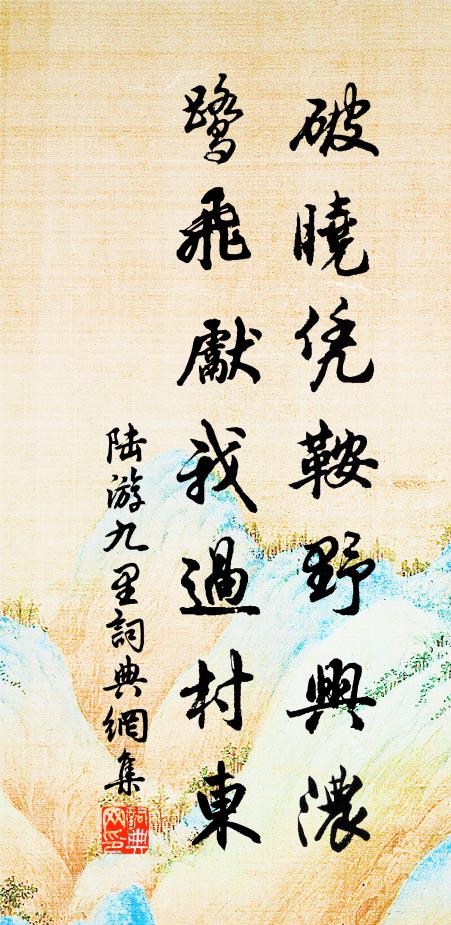 破曉凭鞍野興濃
鷺飛獻我過村東
陆游九里詞典網集
詞典网印